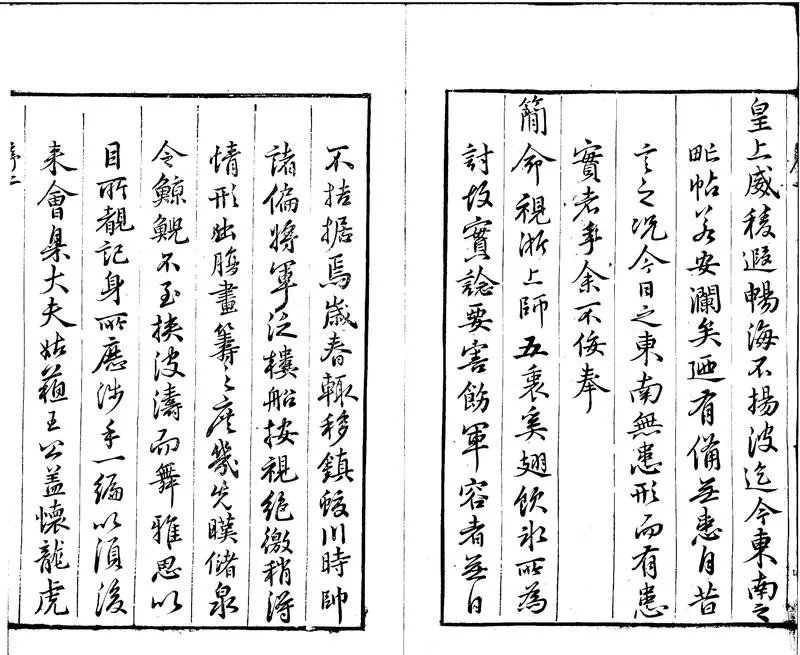 皇上威稜遐暢海不揚波迄今東南之
甿帖若安瀾矣廼有備無患自昔
言之況今日之東南無患形而有患
實者乎余不佞奉
簡命視浙上師五裘奚翅飲冰所為
討故實諗要害飭軍容者無日
不拮据焉歲春輒移鎮蛟川時帥
諸偏將軍泛樓船按視絕徼稍得
情形出臆畫籌之庶幾先暵儲泉
令鯨鯢不至挾波濤而舞雅思以
目所覩記身所歷涉手一編以須後
来會臬大夫姑蘓王公蓋懷龍虎
序二